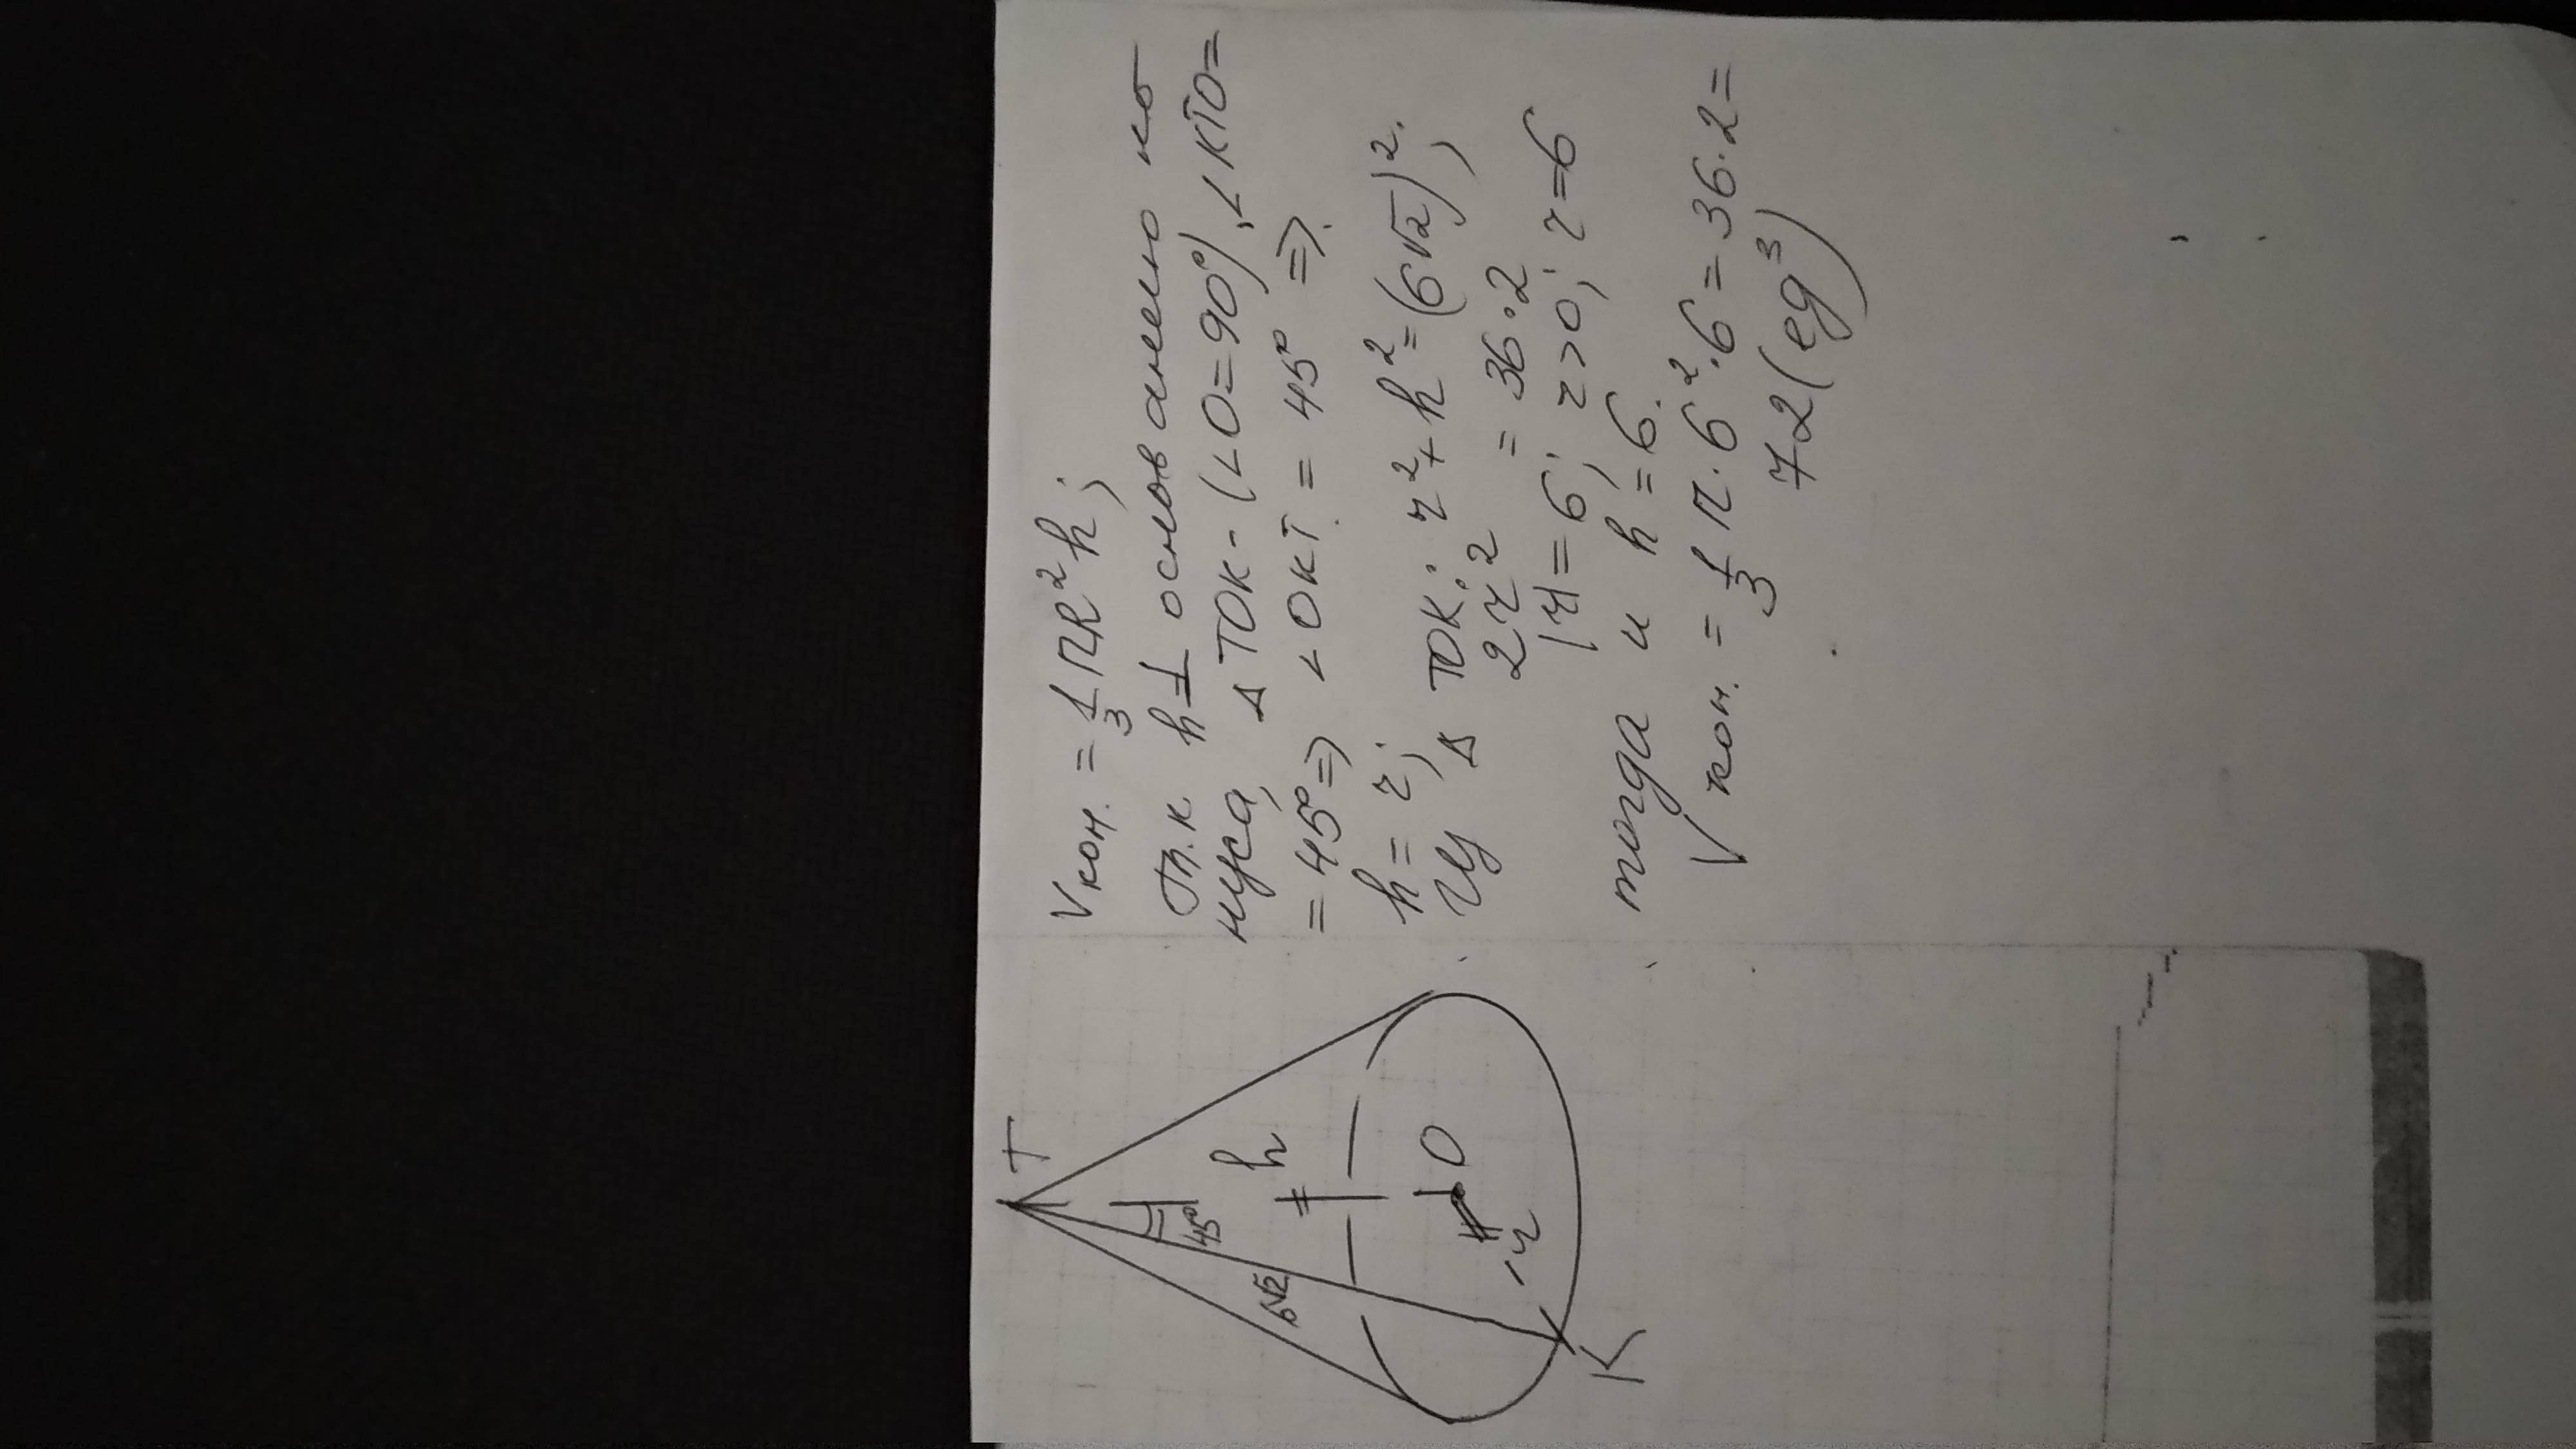 T
h
45°
6√2
O
r
K
Vкон. = 1/3 ПR²h;
Т.к h⊥ основанию ко
нуса, ΔTOK - (∠O=90°), ∠KTO=
= 45° => ∠OKT = 45° =>
h = r;
Из Δ TOK: r² + h² = (6√2)²;
2r² = 36·2
|r| = 6; r>0; r=6
тогда и h = 6.
Vкон. = 1/3 П·6²·6 = 36·2 =
72 (ед³)